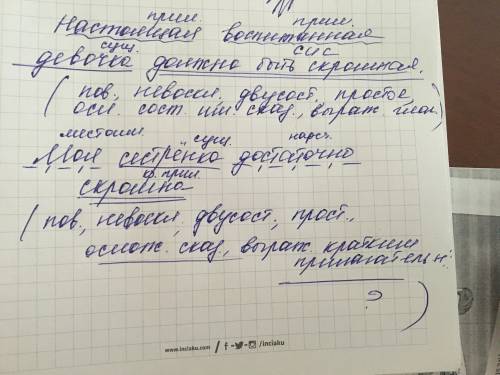 прил. прил.
Настоящая воспитанная
сущ. сис
девочка должно быть скромная.
(пов., невоскл., двусост., простое
осл. сост. им. сказ., выраж. глаг.)
местоим. сущ. нареч.
Моя сестрёнка достаточно
кр. прил.
скромна
(пов., невоскл., двусост., прост.,
ослож. сказ., выраж. кратким
прилагательн.
?)
www.inciaku.com / /inciaku